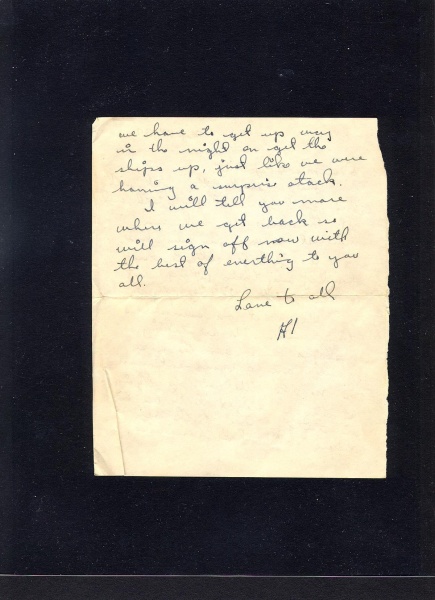 we have to get up way
in the night an get the
ships up, just like we were
having a surprise atack.
I will tell you more
when we get back so
will sign off now with
the best of everthing to you
all.
Love to all
Al